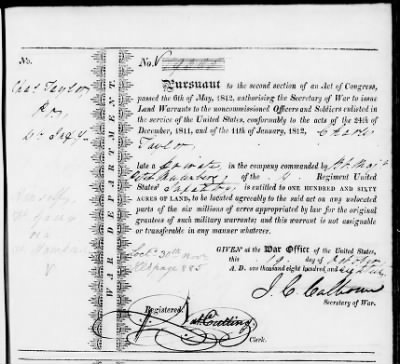 No.
No.
Pursuant to the second section of an Act of Congress,
passed the 6th of May, 1812, authorising the Secretary of War to issue
Land Warrants to the noncommissioned Officers and Soldiers enlisted in
the service of the United States, conformably to the acts of the 24th of
December, 1811, and of the 11th of January, 1812, Charles
Taylor
late a Private in the company commanded by
of the 4 Regiment United
States' Infantry is entitled to ONE HUNDRED AND SIXTY
ACRES OF LAND, to be located agreeably to the said act on any unlocated
parts of the six millions of acres appropriated by law for the original
grantees of such military warrants; and this warrant is not assignable
or transferrable in any manner whatever.
GIVEN at the War Office of the United States,
this 19 day of
A. D. one thousand eight hundred and
J. C. Calhoun
Secretary of War.
Registered
Nat Cutting
Clerk.
Chas Taylor
4th Infy
WAR DEPARTMENT
Oct 30th
page 885